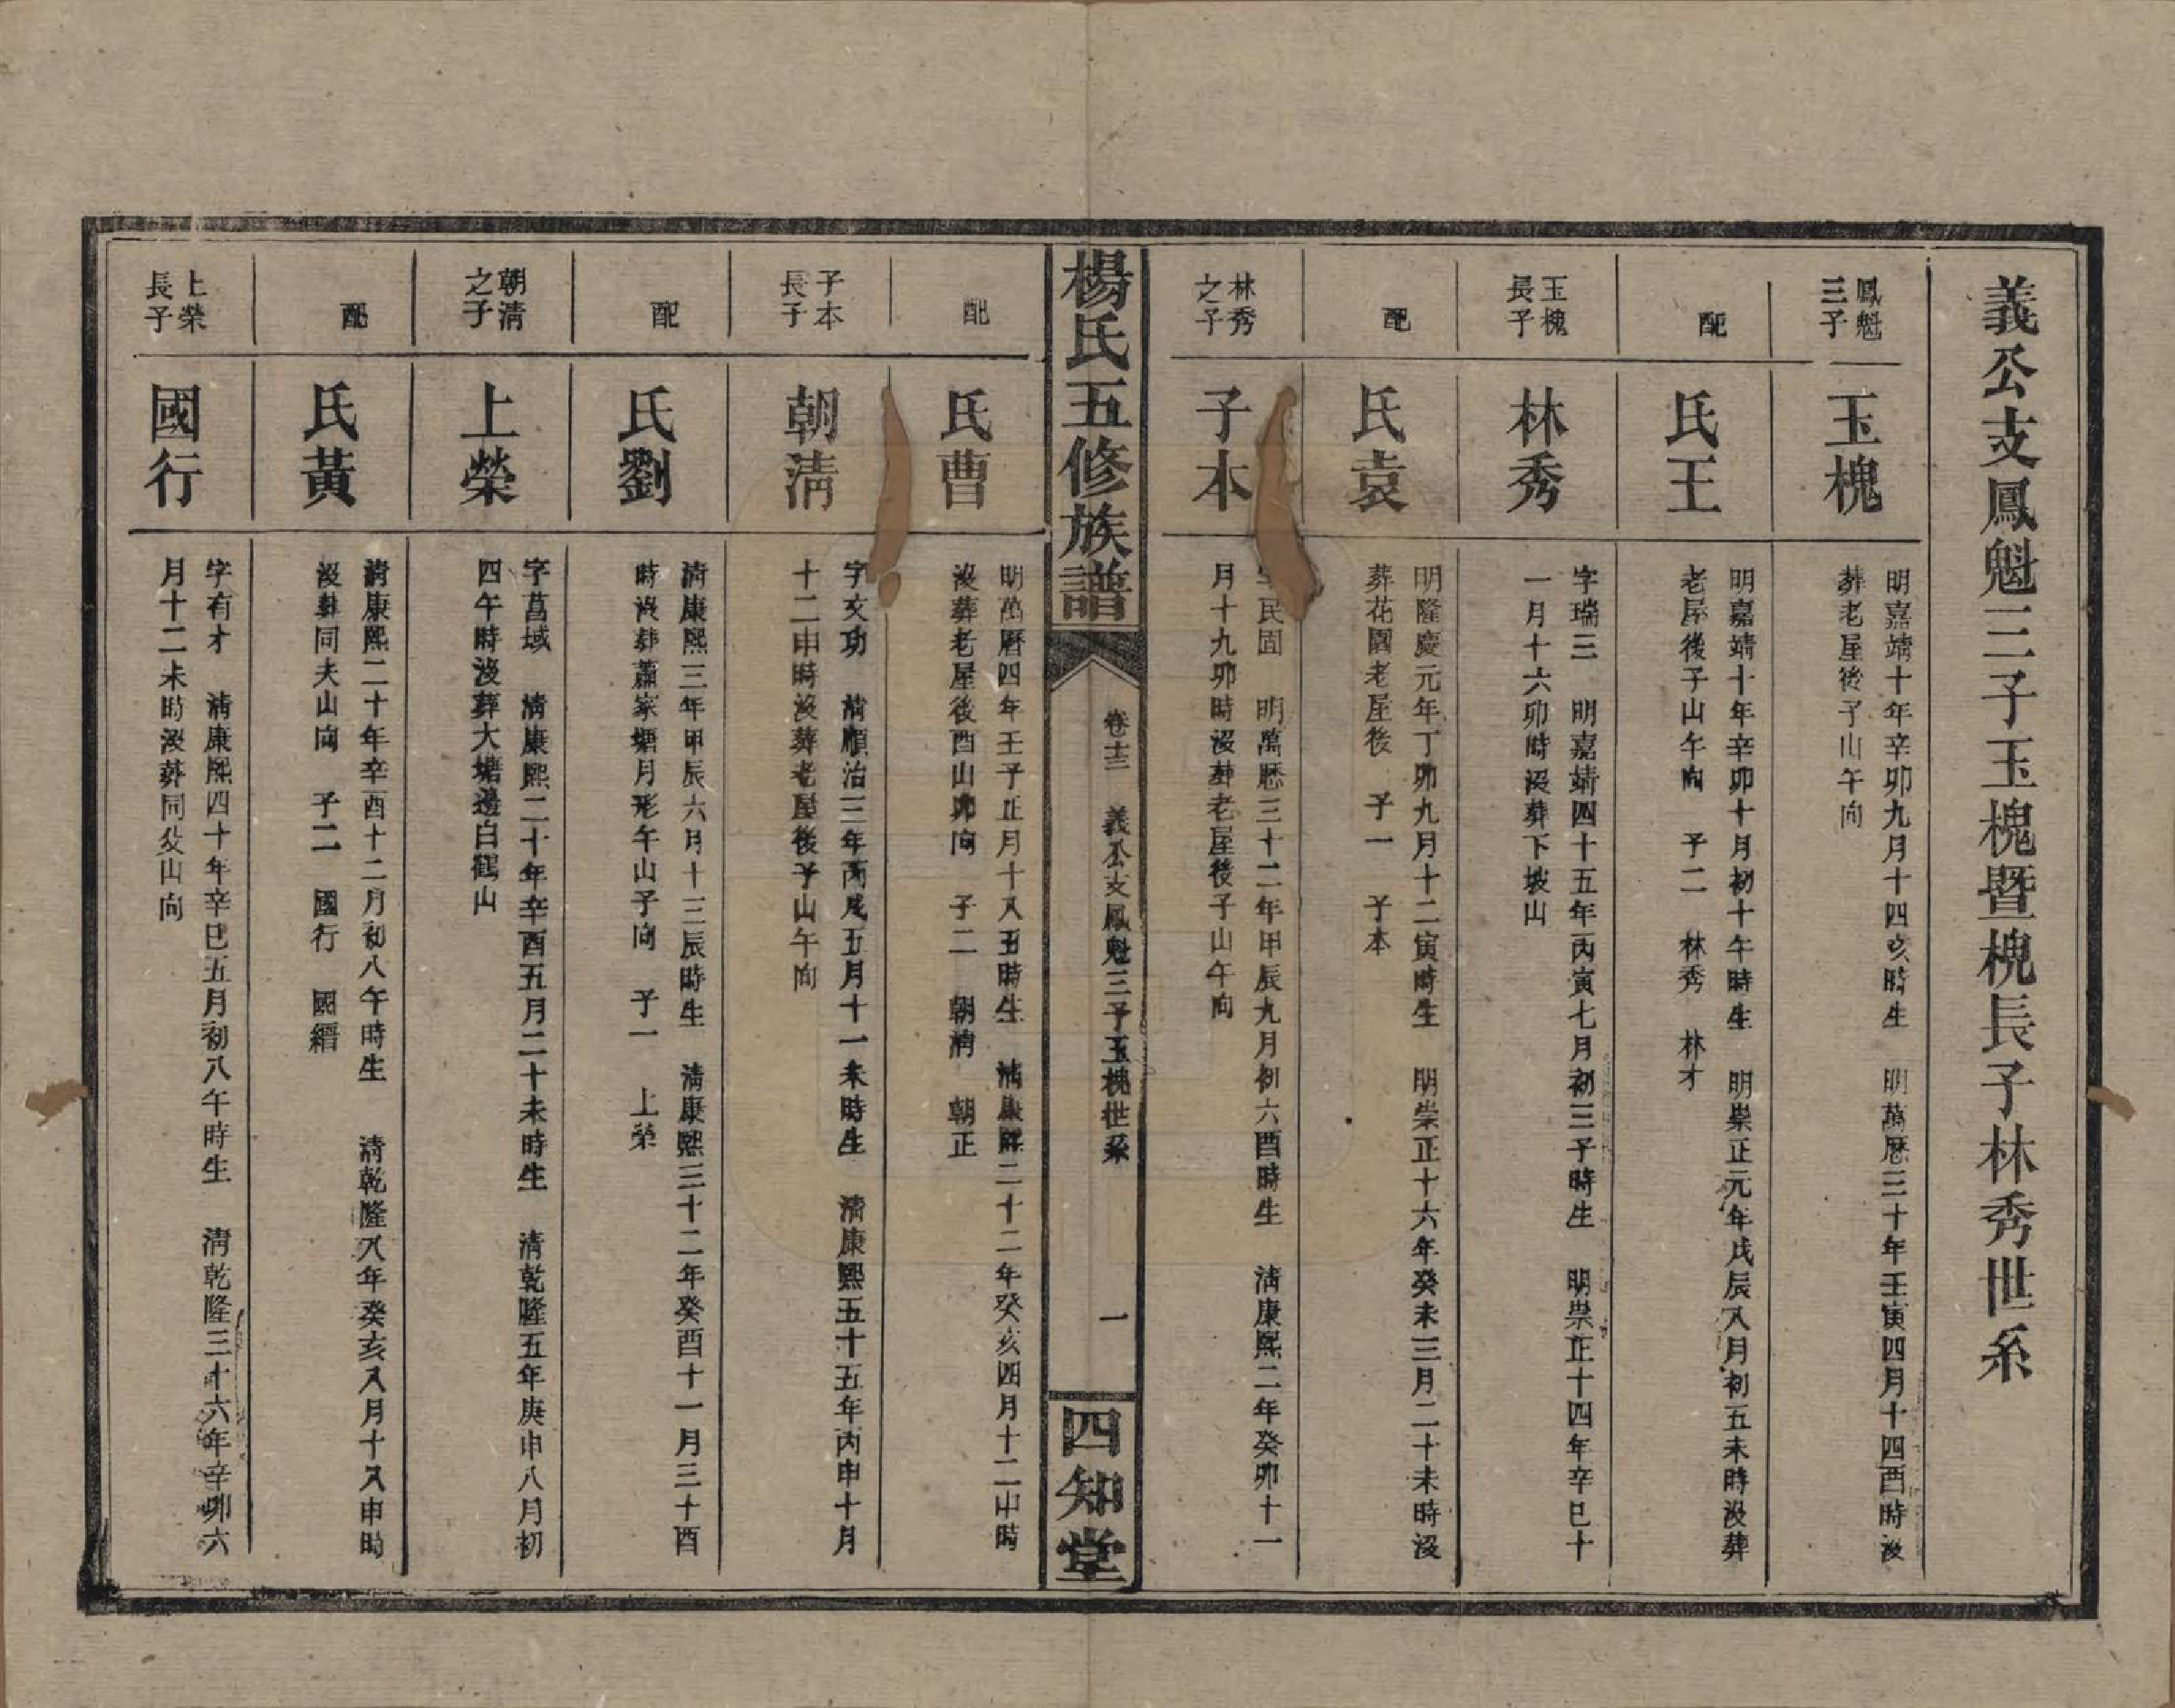 義公支鳳魁三子玉槐曁槐長子林秀世系
鳳魁
三子
玉槐
明嘉靖十年辛卯九月十四亥時生　明萬歷三十年壬寅四月十四酉時歿
葬老屋後子山午向
配
氏王
明嘉靖十年辛卯十月初十午時生　明崇正元年戊辰八月初五未時歿葬
老屋後子山午向　子二　林秀　林才
玉槐
長子
林秀
字瑞三　明嘉靖四十五年丙寅七月初三子時生　明崇正十四年辛巳十
一月十六卯時歿葬下坡山
配
氏袁
明隆慶元年丁卯九月十二寅時生　明崇正十六年癸未三月二十未時歿
葬花園老屋後　子一　子本
林秀
之子
子本
字民固　明萬歷三十二年甲辰九月初六酉時生　清康熙二年癸卯十一
月十九卯時歿葬老屋後子山午向
楊氏五修族譜
卷十三　義公支鳳魁三子玉槐世系　一
四知堂
配
氏曹
明萬曆四年壬子正月十八丑時生　清康熙二十二年癸亥四月十二申時
歿葬老屋後酉山卯向　子二　朝清　朝正
子本
長子
朝清
字文功　清順治三年丙戌五月十一未時生　清康熙五十五年丙申十月
十二申時歿葬老屋後子山午向
配
氏劉
清康熙三年甲辰六月十三辰時生　清康熙三十二年癸酉十一月三十酉
時歿葬蕭家塘月形午山子向　子一　上榮
朝清
之子
上榮
字菖域　清康熙二十年辛酉五月二十未時生　清乾隆五年庚申八月初
四午時歿葬大塘邊白鶴山
配
氏黃
清康熙二十年辛酉十二月初八午時生　清乾隆八年癸亥八月十八申時
歿葬同夫山向　子二　國行　國縉
上榮
長子
國行
字有才　清康熙四十年辛巳五月初八午時生　清乾隆三十六年辛卯六
月十二未時歿葬同父山向